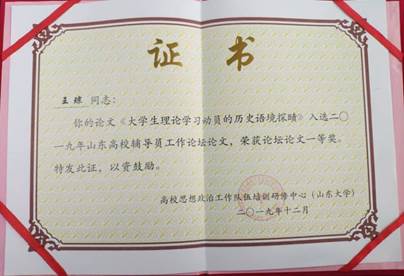 证书
王琼 同志：
你的论文《大学生理论学习动员的历史语境探赜》入选二〇
一九年山东高校辅导员工作论坛论文，荣获论坛论文一等奖。
特发此证，以资鼓励。
高校思想政治工作队伍培训研修中心（山东大学）
二〇一九年十二月